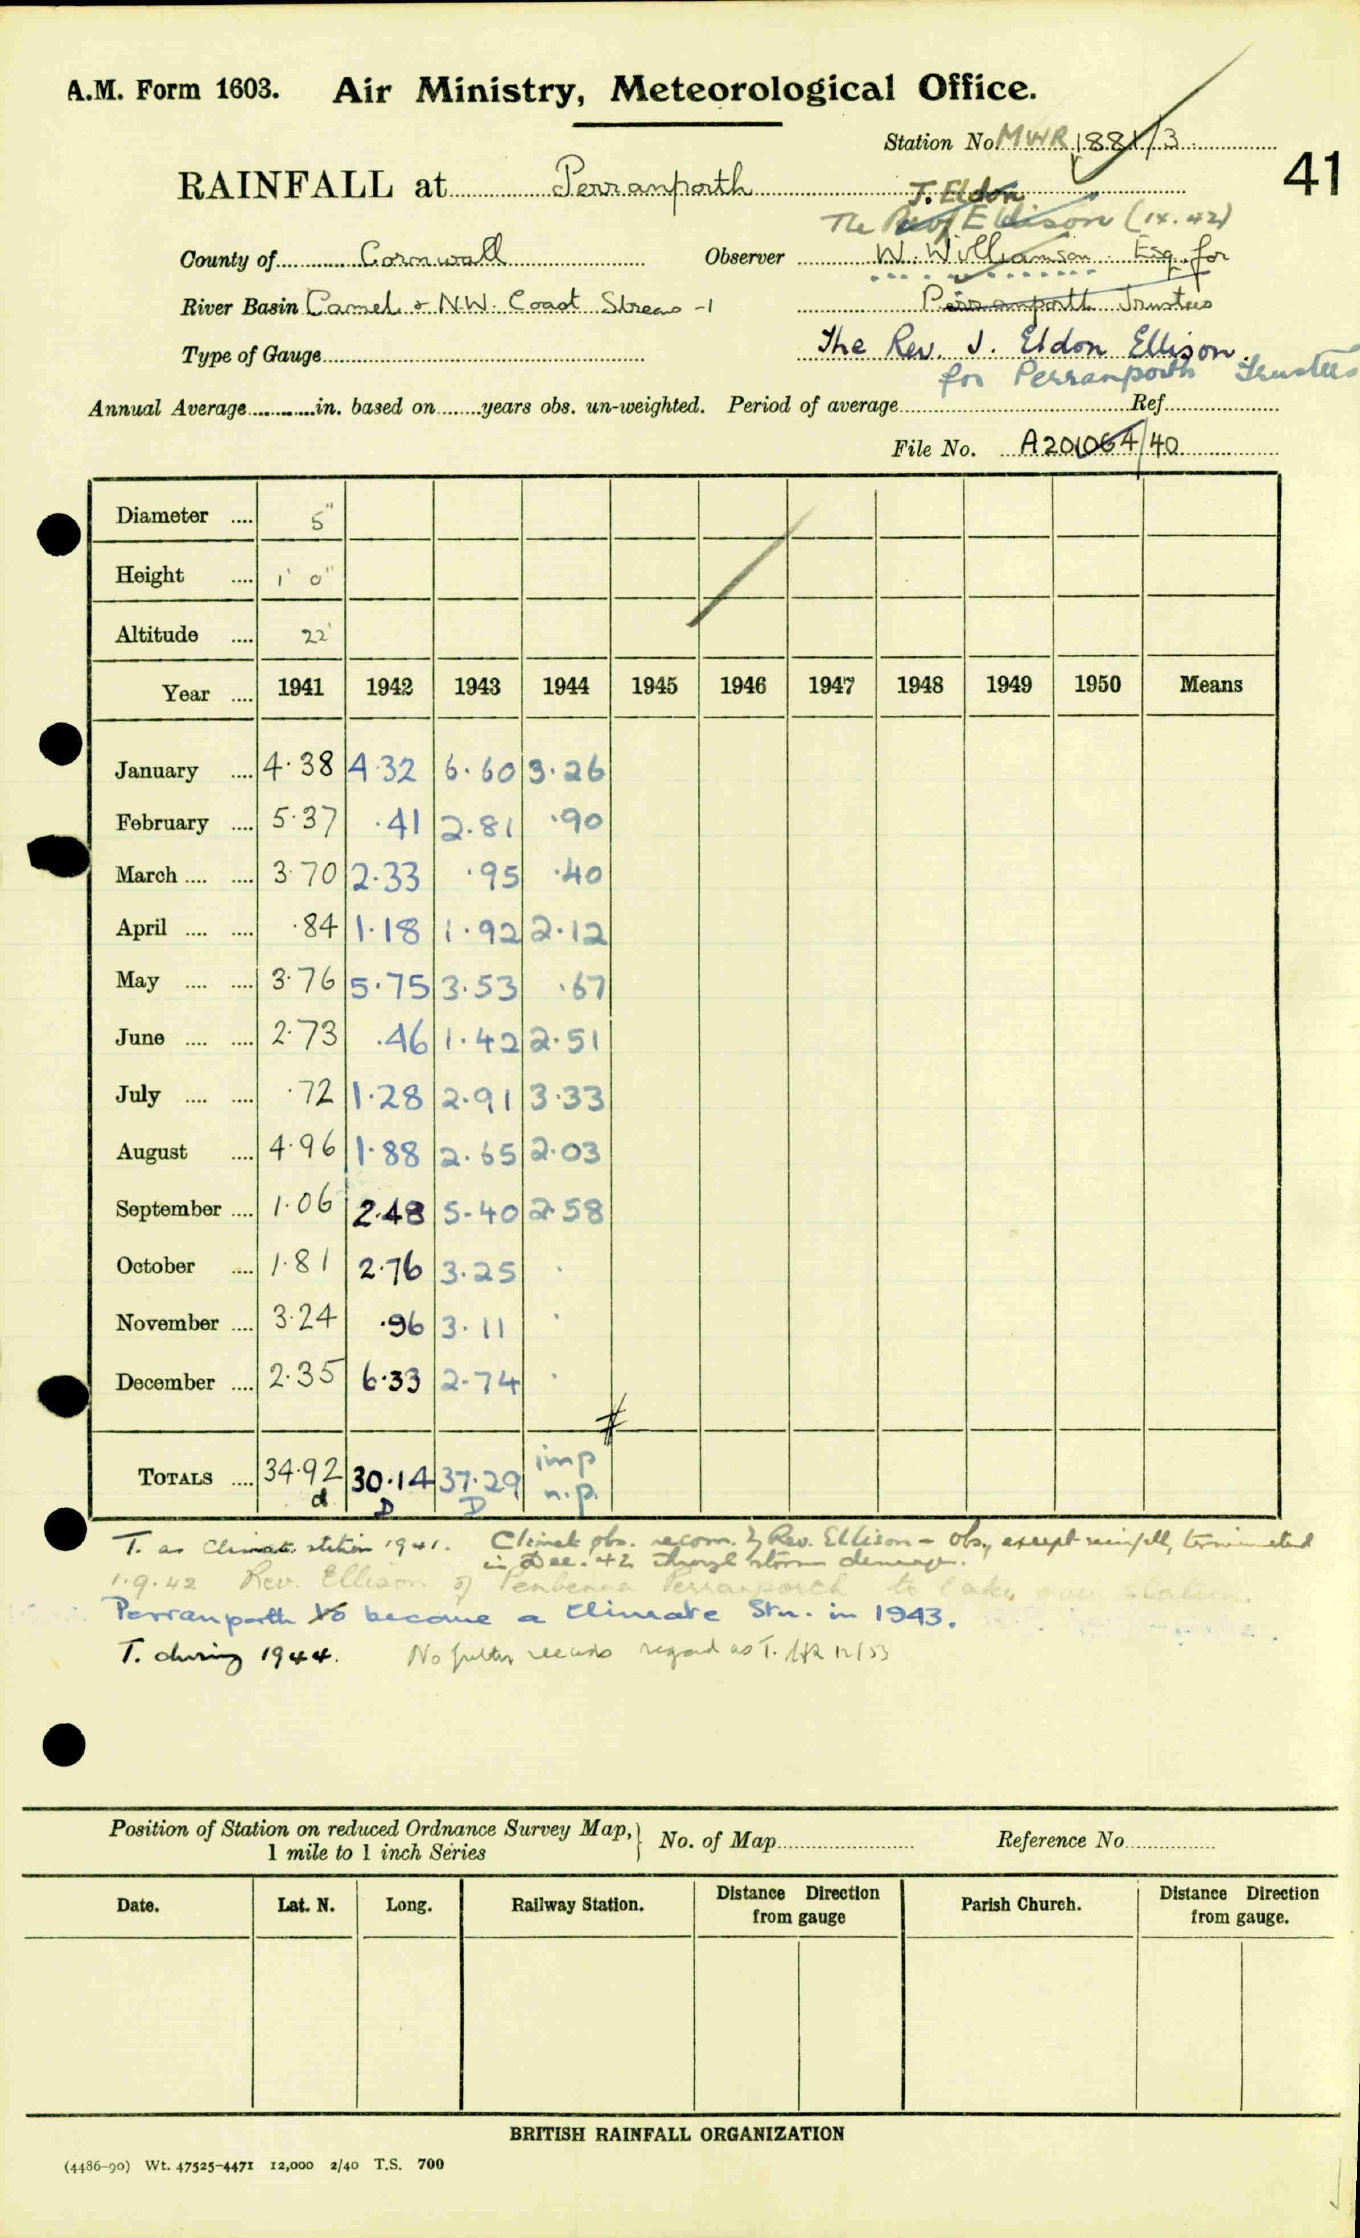 A.M. Form 1603. Air Ministry, Meteorological Office.
Station No. MWR 1881/3
41
RAINFALL at Perranporth
J. Eldon
The Rev Ellison (ix.42)
County of Cornwall Observer W. Williamson Esq. for
River Basin Camel & N.W. Coast Streams -1 Perranporth Trustees
Type of Gauge The Rev. J. Eldon Ellison.
for Perranporth Trustees
Annual Average in. based on years obs. un-weighted. Period of average Ref.
File No. A201064/40
Diameter 5"
Height 1' 0"
Altitude 22'
Year 1941 1942 1943 1944 1945 1946 1947 1948 1949 1950 Means
January 4.38 4.32 6.60 3.26
February 5.37 .41 2.81 .90
March 3.70 2.33 .95 .40
April .84 1.18 1.92 2.12
May 3.76 5.75 3.53 .67
June 2.73 .46 1.42 2.51
July .72 1.28 2.91 3.33
August 4.96 1.88 2.65 2.03
September 1.06 2.48 5.40 2.58
October 1.81 2.76 3.25 .
November 3.24 .96 3.11 .
December 2.35 6.33 2.74 .
TOTALS 34.92 30.14 37.29 imp
d D D n.p.
T. as Climat. station 1941. Climat obs. recom. by Rev. Ellison - Obs, except rainfall, terminated
in Dec. 42 through storm damage.
1.9.42 Rev. Ellison of Penbenna Perranporth to take over station.
Perranporth to become a Climate Stn. in 1943.
T. during 1944. No further records regard as T. 12/53
Position of Station on reduced Ordnance Survey Map, 1 mile to 1 inch Series No. of Map Reference No.
Date. Lat. N. Long. Railway Station. Distance Direction from gauge Parish Church. Distance Direction from gauge.
BRITISH RAINFALL ORGANIZATION
(4486-90) Wt. 47525-4471 12,000 2/40 T.S. 700